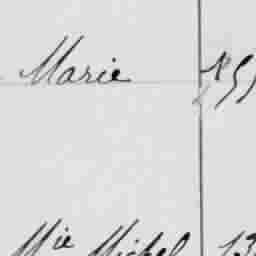 Marie
Mie Michel 13